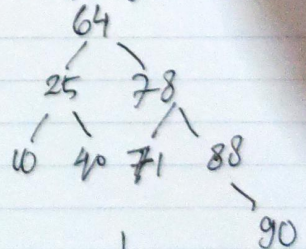 64
25 78
10 40 71 88
90